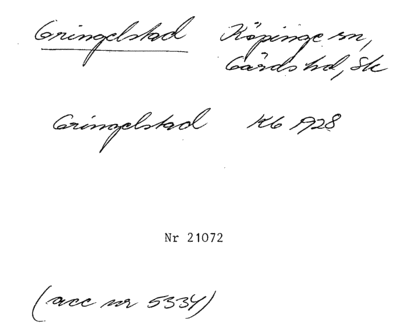 Gringelstad Köpinge sn,
Gärds hd, Sk
Gringelstad Kb 1928
Nr 21072
(acc nr 5334)